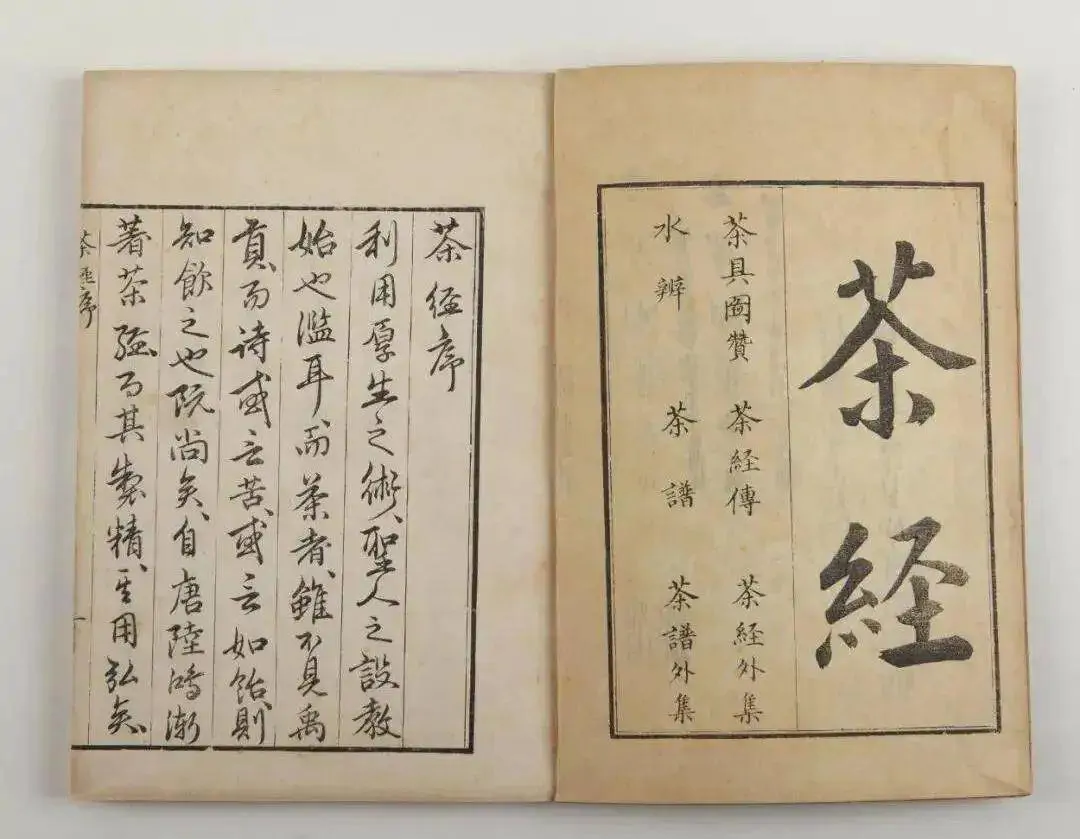 茶経
茶具圖贊 茶経傳 茶経外集
水辨 茶譜 茶譜外集
茶経序
利用厚生之術、聖人之設教
始也濫耳、而茶者、雖不見禹
貢、而詩或言苦、或言如飴、則
知飲之也既尚矣、自唐陸鴻漸
著茶経、而其製精、其用弘矣、
茶経序
一